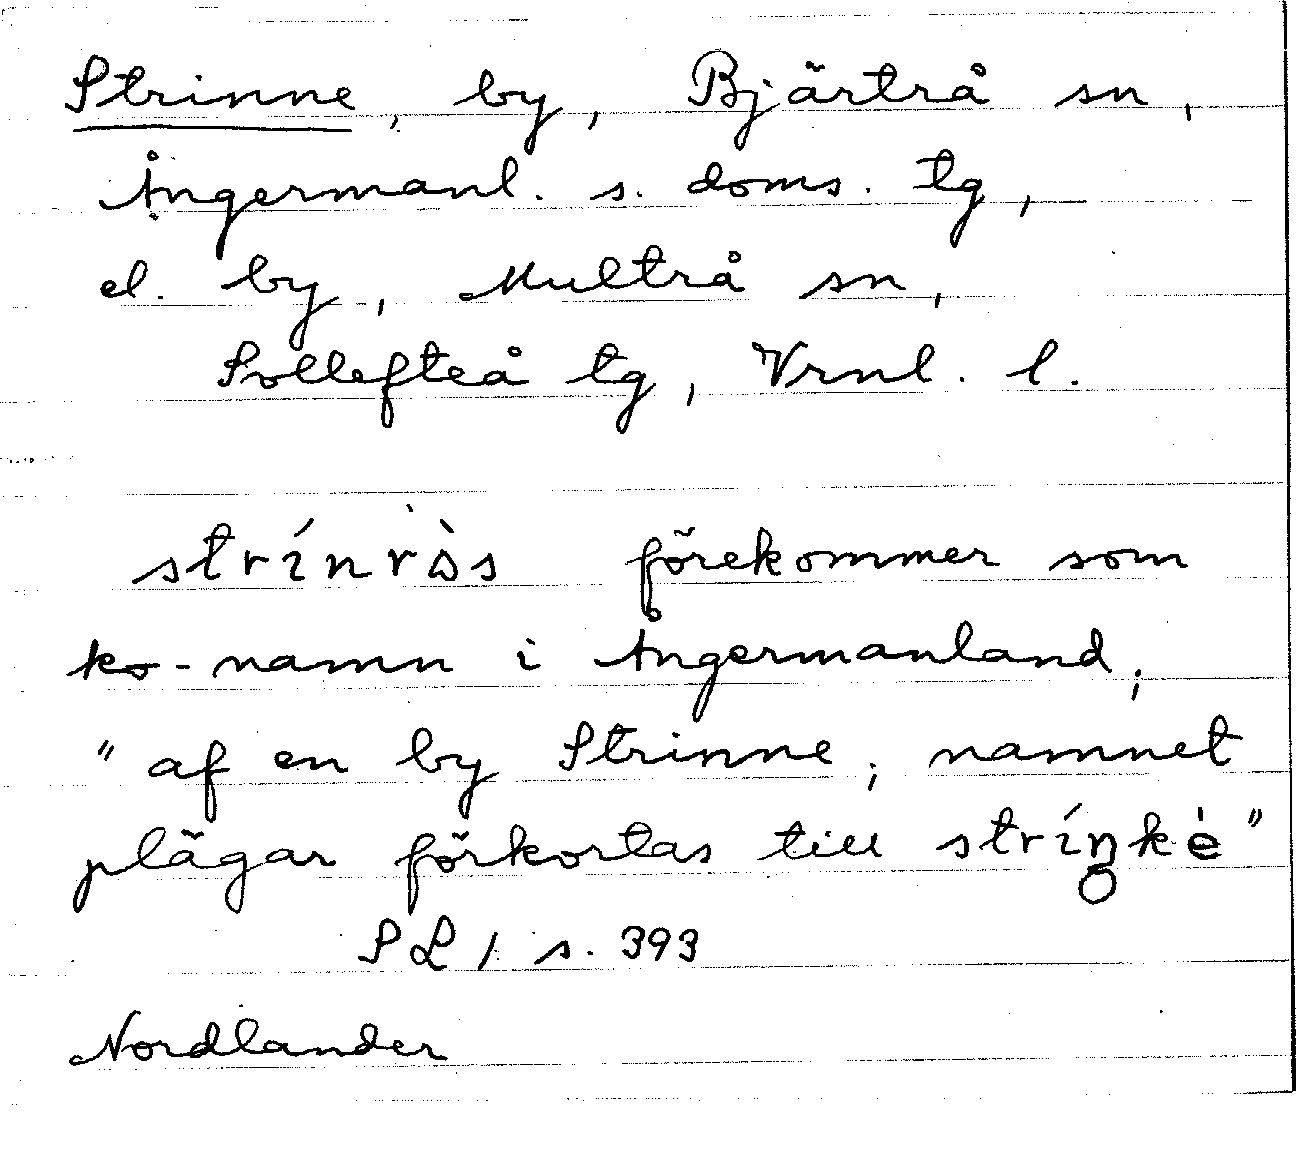 Strinne, by, Bjärtrå sn,
Ångermanl. s. doms. tg,
el. by, Multrå sn,
Sollefteå tg, Vrnl. l.
strínròs förekommer som
ko-namn i Ångermanland;
"af en by Strinne; namnet
plägar förkortas till strín̥kè"
SL 1 s. 393
Nordlander